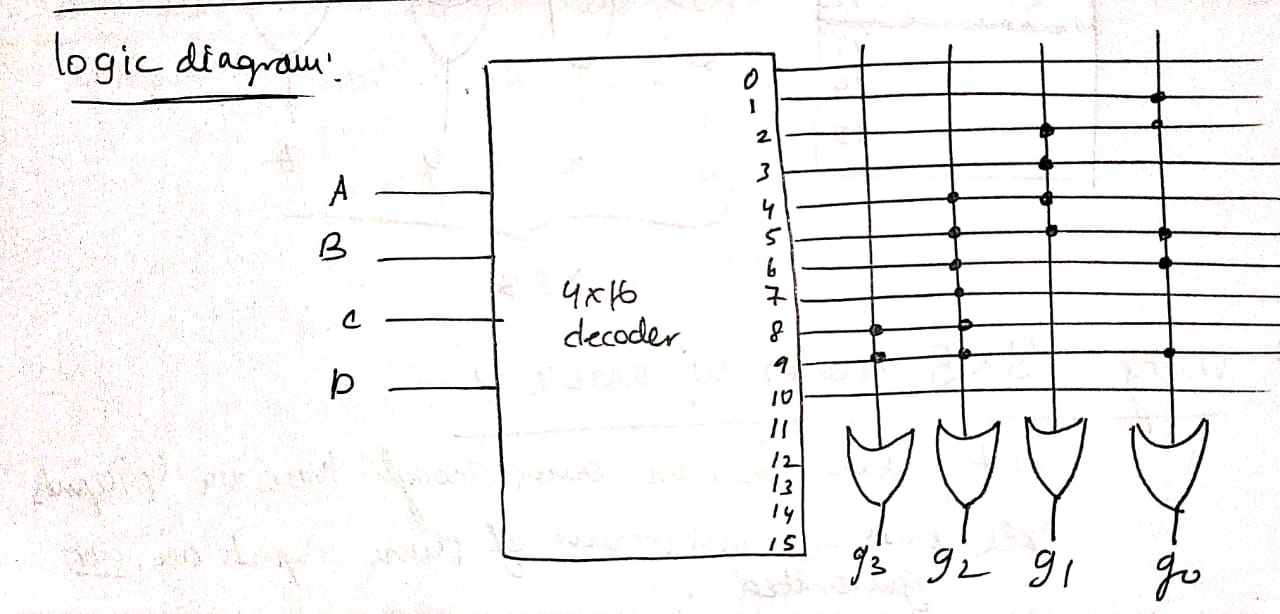 logic diagram:
A
B
C
D
4x16
decoder
0
1
2
3
4
5
6
7
8
9
10
11
12
13
14
15
g3 g2 g1 g0